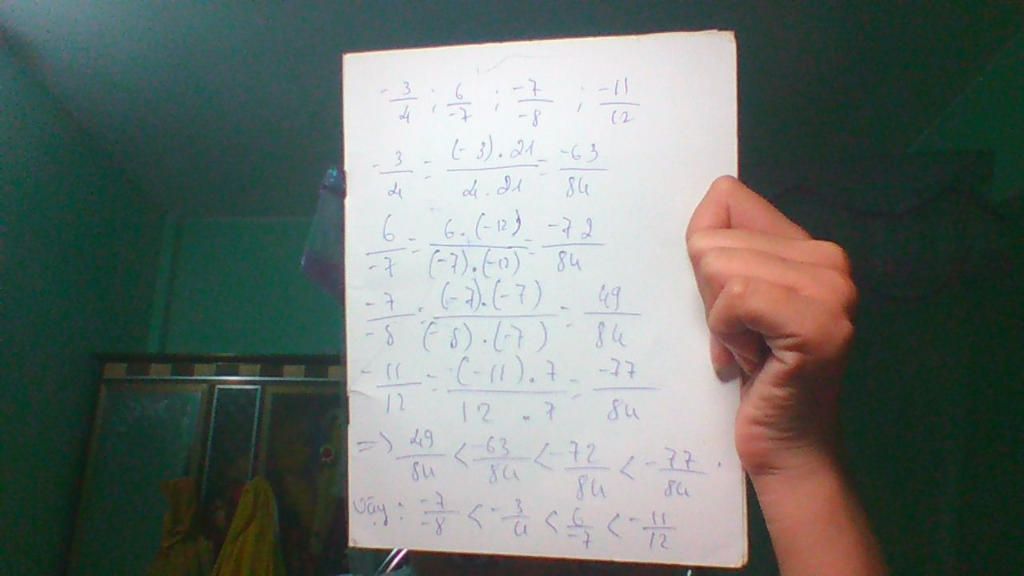 -3/4 ; 6/-7 ; -7/-8 ; -11/12
-3/4 = (-3).21/4.21 = -63/84
6/-7 = 6.(-12)/(-7).(-12) = -72/84
-7/-8 = (-7).(-7)/(-8).(-7) = 49/84
-11/12 = (-11).7/12.7 = -77/84
=> 49/84 < -63/84 < -72/84 < -77/84.
Vậy : -7/-8 < -3/4 < 6/-7 < -11/12